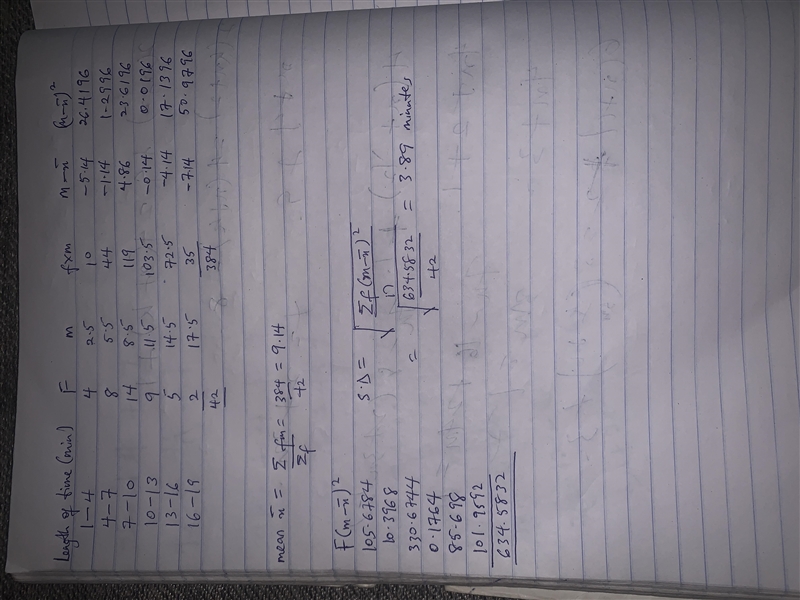 Length of time (min) F m fxm m-x̄ (m-x̄)²
1-4 4 2.5 10 -5.14 26.4196
4-7 8 5.5 44 -1.14 1.2996
7-10 14 8.5 119 4.86 23.6196
10-13 9 11.5 103.5 -0.14 0.0196
13-16 5 14.5 72.5 -4.14 17.1396
16-19 2 17.5 35 -7.14 50.9796
42 384
mean x̄ = Σfm/Σf = 384/42 = 9.14
F(m-x̄)²
105.6784
10.3968
330.6744
0.1764
85.698
101.9592
634.5832
S.D = √Σf(m-x̄)²/n
= √634.5832/42 = 3.89 minutes